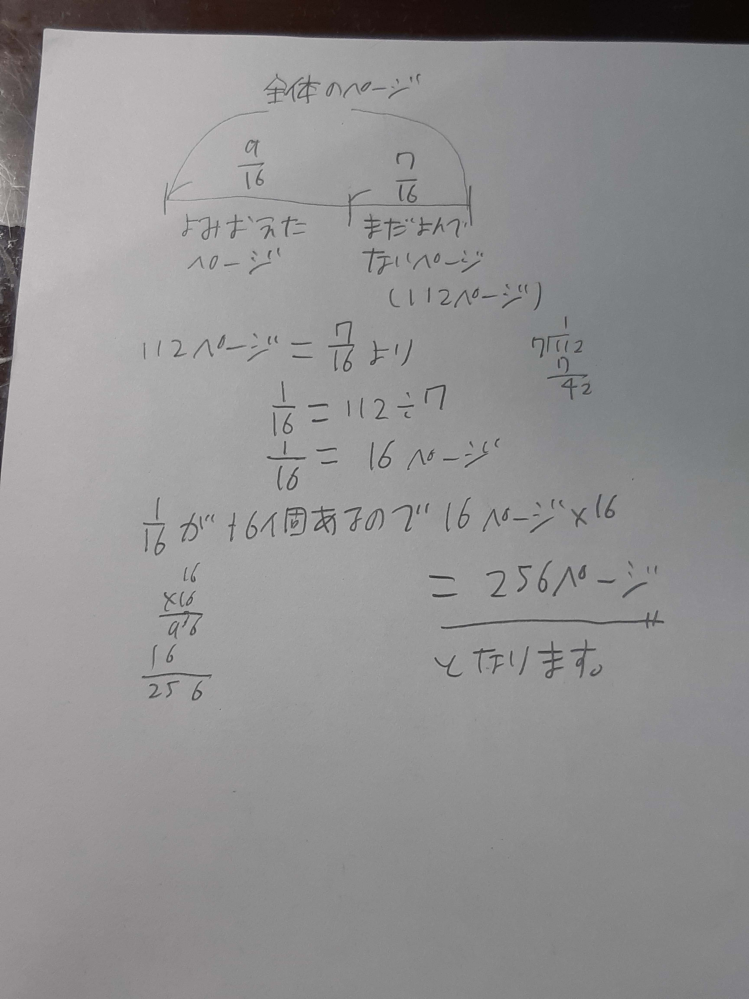 全体のページ
9/16 7/16
よみおえた まだよんで
ページ ないページ
(112ページ)
112ページ = 7/16 より
1
7)112
7
42
1/16 = 112÷7
1/16 = 16ページ
1/16 が 16個あるので 16ページ×16
= 256ページ
となります。
16
×16
96
16
256